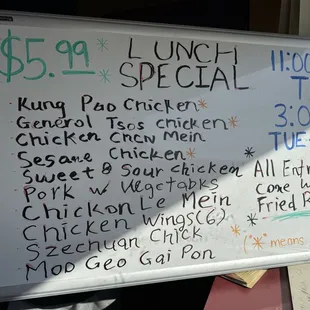 $5.99 * LUNCH
* SPECIAL
11:00
T
3:0
TUE-
· Kung Pao Chicken *
· General Tsos chicken *
· Chicken Chow Mein
· Sesame Chicken *
· Sweet & Sour chicken
· Pork w Vegetabks
· Chickon Le Mein
· Chicken Wings (6)
· Szechuan Chick
· Moo Geo Gai Pon
* All Entr
Come w
Fried R
("*" means